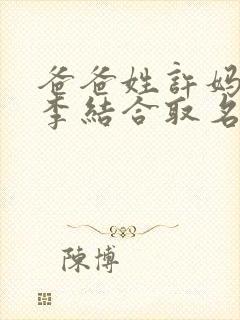 爸爸姓許媽
李結合取名
陳博